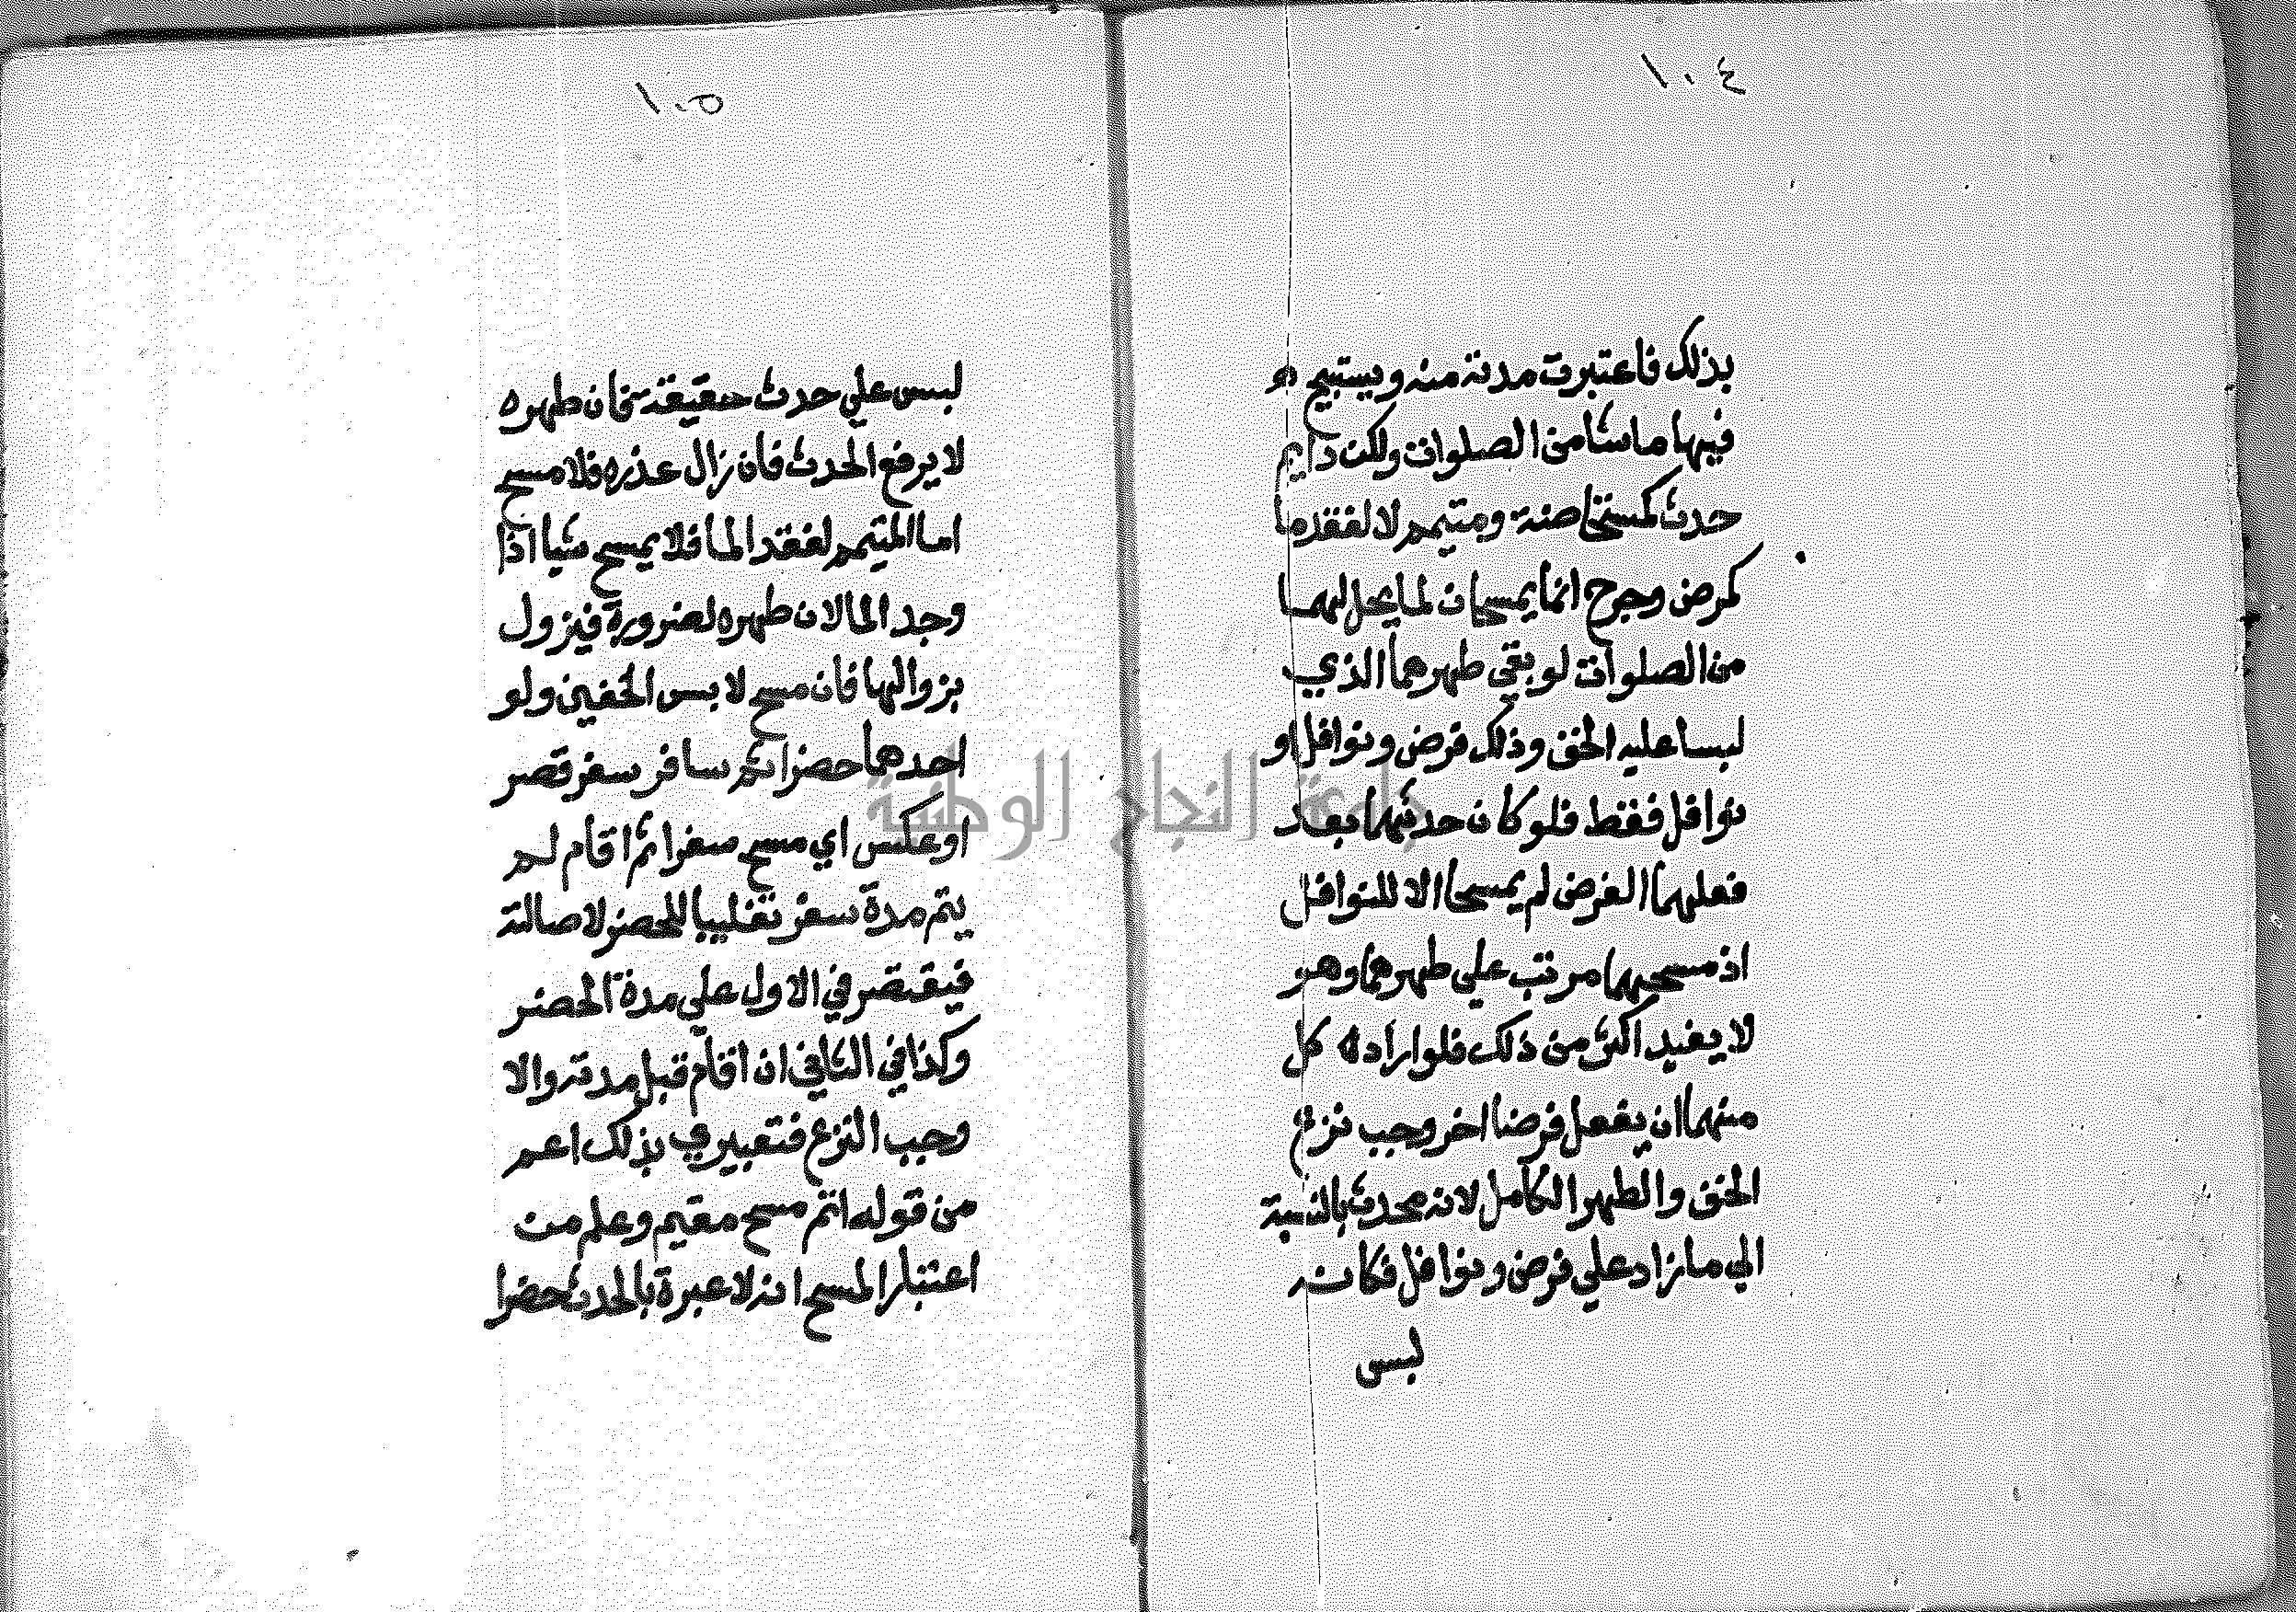 ١٠٤
بذلك فاعتبرت مدته منه ويستبيح
فيها ما شا من الصلوات ولكن دايم
حدث كمستحاضة ومتيمم لا لفقد ما
كمرض وجرح انما يمسحان لما يحل لهما
من الصلوات لو بقي طهرهما الذي
لبسا عليه الخف وذلك فرض ونوافل او
نوافل فقط فلو كان حدثهما بعد
فعلهما الفرض لم يمسحا الا للنوافل
اذ مسحهما مرتب علي طهرهما وهو
لا يفيد اكثر من ذلك فلو اراد كل
منهما ان يفعل فرضا اخر وجب نزع
الخف والطهر الكامل لانه محدث بالنسبة
الي ما زاد علي فرض ونوافل فكانه
لبس
١٠٥
لبس علي حدث حقيقة فان طهره
لا يرفع الحدث فان زال عذره فلا مسح
اما المتيمم لفقد الما فلا يمسح شيا اذا
وجد الما لان طهره لضرورة فيزول
بزوالها فان مسح لابس الخفين ولو
احدهما حضرا ثم سافر سفر قصر
او عكس اي مسح سفرا ثم اقام لم
يتم مدة سفر تغليبا للحضر لاصالته
فيقتصر في الاول علي مدة الحضر
وكذا في الثاني ان اقام قبل مدته والا
وجب النزع فتعبيري بذلك اعم
من قوله اتم مسح مقيم وعلم من
اعتبار المسح انه لا عبرة بالحدث حضرا
جامعة النجاح الوطنية